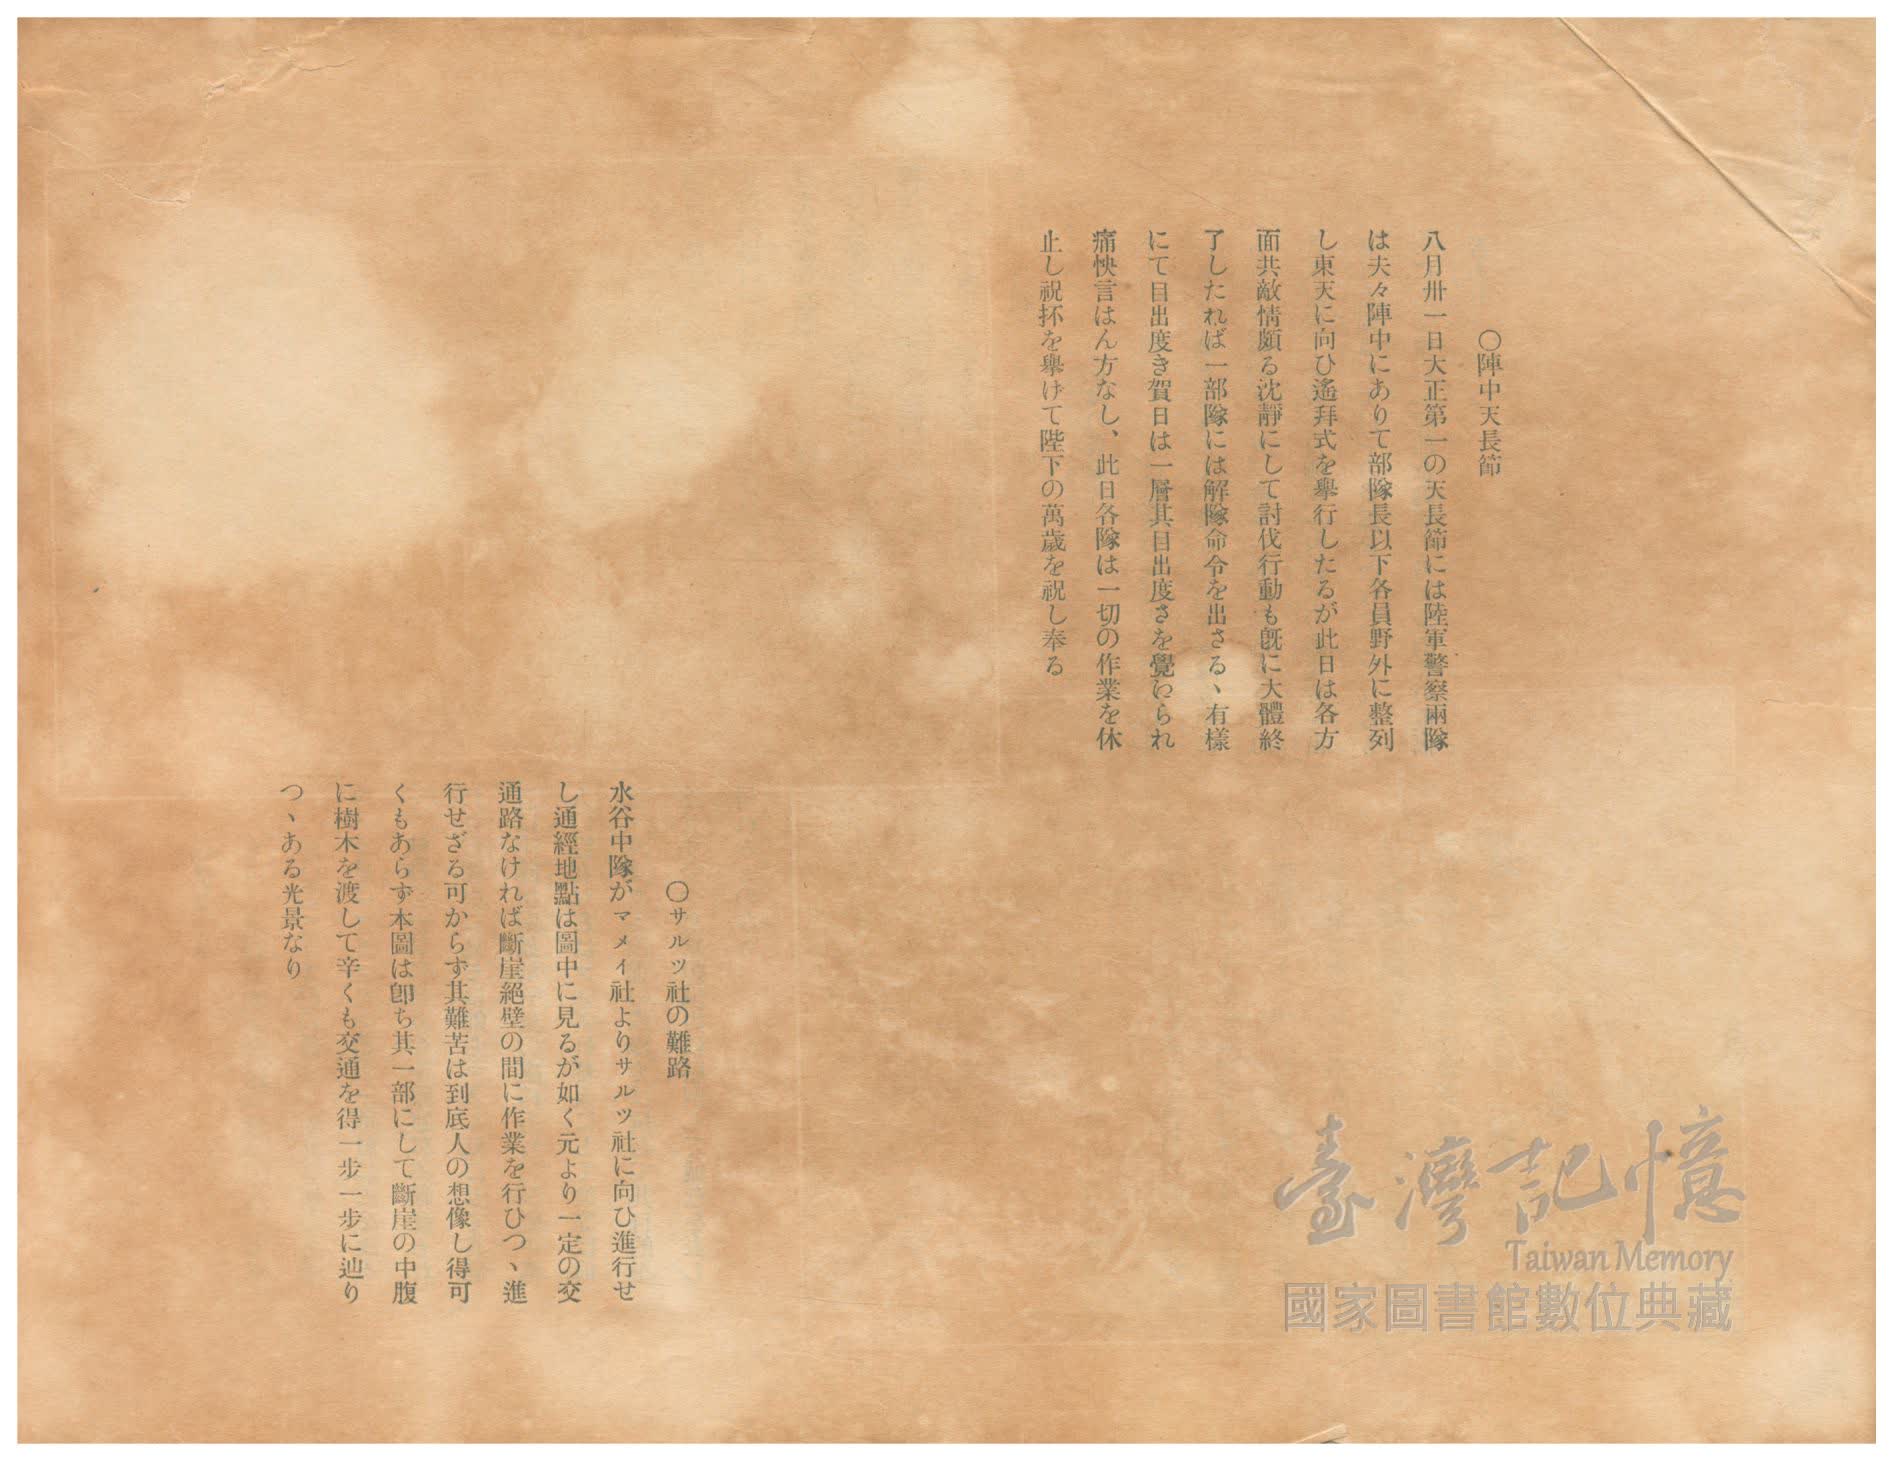 〇陣中天長節
八月卅一日大正第一の天長節には陸軍警察兩隊
は夫々陣中にありて部隊長以下各員野外に整列
し東天に向ひ遙拜式を擧行したるが此日は各方
面共敵情頗る沈靜にして討伐行動も旣に大體終
了したれば一部隊には解隊命令を出さるヽ有樣
にて目出度き賀日は一層其目出度さを覺にられ
痛快言はん方なし、此日各隊は一切の作業を休
止し祝抔を擧けて陛下の萬歲を祝し奉る
〇サルツ社の難路
水谷中隊がマメイ社よりサルツ社に向ひ進行せ
し通經地點は圖中に見るが如く元より一定の交
通路なければ斷崖絕壁の間に作業を行ひつヽ進
行せざる可からず其難苦は到底人の想像し得可
くもあらず本圖は卽ち其一部にして斷崖の中腹
に樹木を渡して辛くも交通を得一步一步に辿り
つヽある光景なり
臺灣記憶
Taiwan Memory
國家圖書館數位典藏